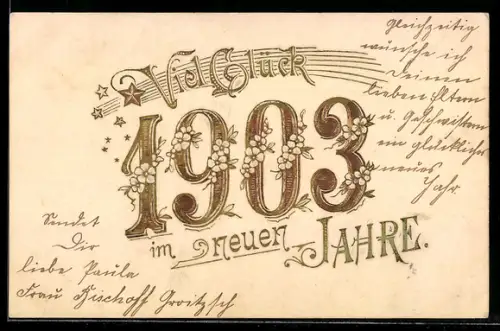 Viel Glück
1903
im neuen
JAHRE.
gleichzeitig
wünsche ich
Deinen
lieben Eltern
u. Geschwistern
ein glückliches
neues
Jahr.
Sendet
Dir
liebe Paula
Frau Bischoff Groitzsch